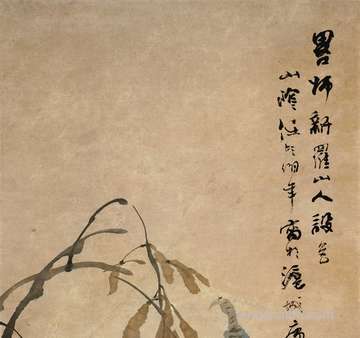 畧師新羅山人設色
山陰任伯年寓於滬城商